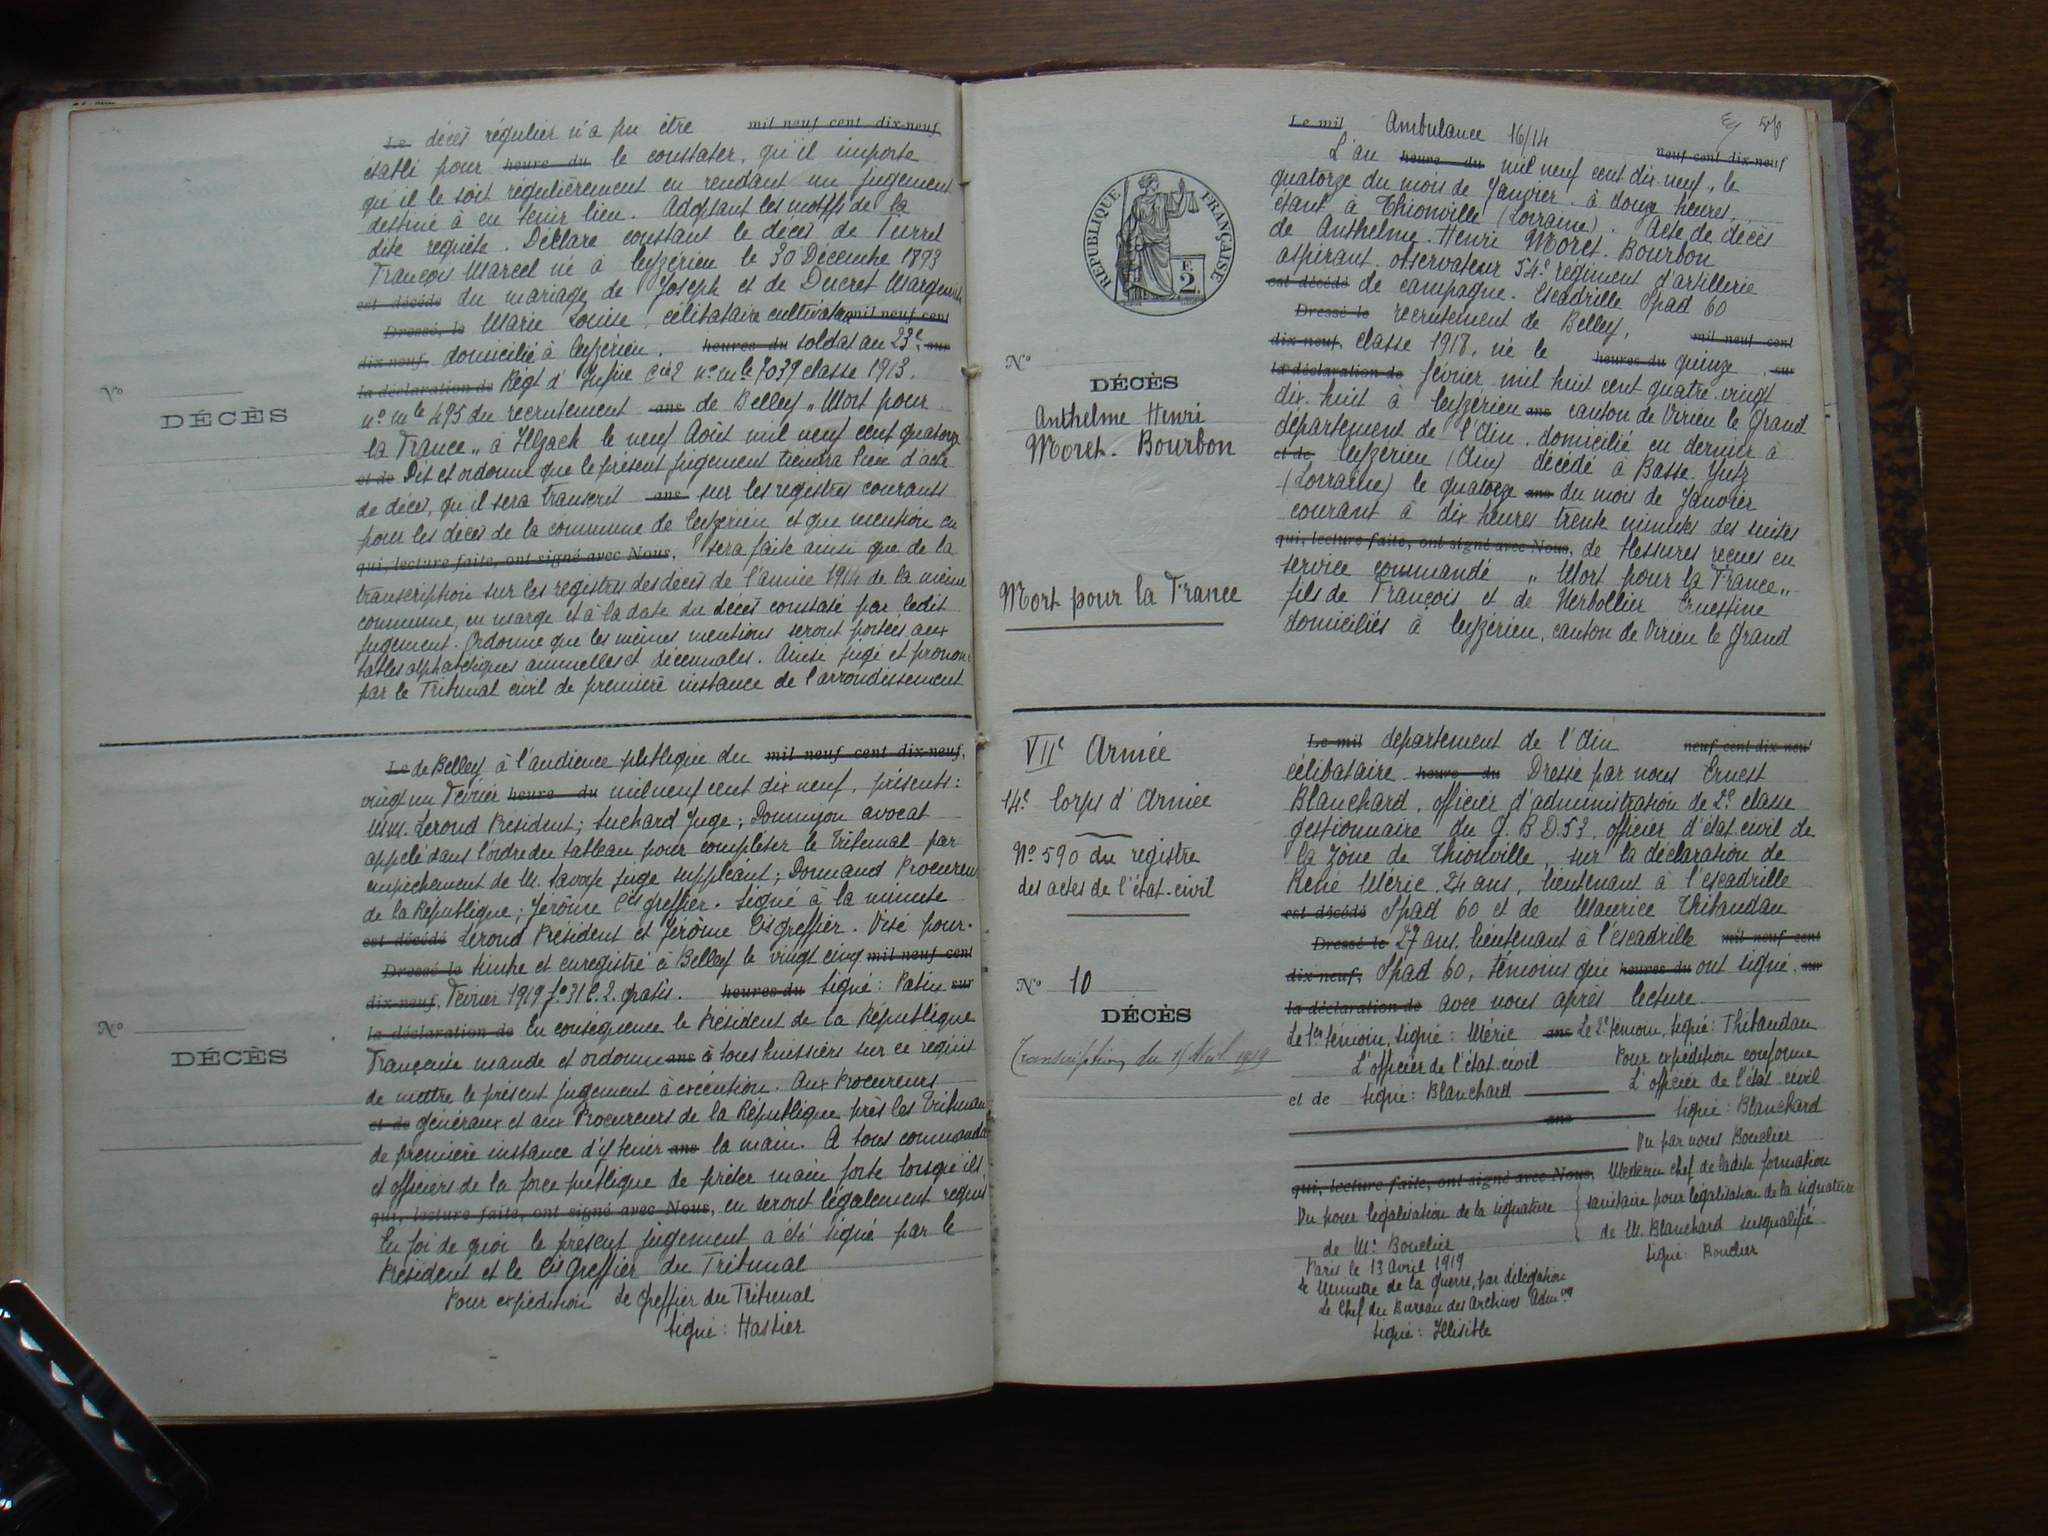 Le décès régulier n'a pu être mil neuf cent dix-neuf
établi pour heure du le constater, qu'il importe
qu'il le soit régulièrement en rendant un jugement
destiné à en tenir lieu. Adoptant les motifs de la
dite requête. Déclare constant le décès de Turrel
François Marcel né à Ceyzérieu le 30 Décembre 1893
est décédé du mariage de Joseph et de Ducret Marguerite
Dressé, le Marie Louise, célibataire cultivateur mil neuf cent
dix-neuf, domicilié à Ceyzérieu, heures du soldat au 23e, sur
la déclaration de Régt d'Infie Cie 2 no mle 7039 classe 1913.
No
DÉCÈS
no mle 495 du recrutement ans de Belley „ Mort pour
la France „ à Illzach le neuf Août mil neuf cent quatorze
et de Dit et ordonne que le présent jugement tiendra lieu d'acte
de décès, qu'il sera transcrit ans sur les registres courants
pour les décès de la commune de Ceyzérieu et que mention en
qui, lecture faite, ont signé avec Nous, sera faite ainsi que de la
transcription sur les registres des décès de l'année 1914 de la même
commune, en marge et à la date du décès constaté par ledit
jugement. Ordonne que les mêmes mentions seront portées aux
tables alphabétiques annuelles et décennales. Ainsi jugé et prononcé
par le Tribunal civil de première instance de l'arrondissement
Le de Belley à l'audience publique du mil neuf cent dix-neuf,
vingt un Février heure du mil neuf cent dix neuf, présents:
MM. Lerond Président; Suchard Juge; Dominjon avocat
appelé dans l'ordre du tableau pour compléter le Tribunal par
empêchement de M. juge suppléant; Dormand Procureur
de la République; Jérôme Cis greffier. Signé à la minute
est décédé Lerond Président et Jérôme Cis Greffier. Visé pour
Dressé le timbre et enregistré à Belley le vingt cinq mil neuf cent
dix-neuf, Février 1919 fo 31 C. 2. gratis. heures du Signé: Patin sur
la déclaration de En conséquence le Président de la République
No
DÉCÈS
Française mande et ordonne ans à tous huissiers sur ce requis
de mettre le présent jugement à exécution. Aux Procureurs
et de généraux et aux Procureurs de la République près les Tribunaux
de première instance d'y tenir ans la main. A tous commandants
et officiers de la force publique de prêter main forte lorsqu'ils
qui, lecture faite, ont signé avec Nous, en seront légalement requis
En foi de quoi le présent jugement a été signé par le
Président et le Cis Greffier du Tribunal
Pour expédition Le Greffier du Tribunal
Signé: Hastier
Le mil Ambulance 16/14
L'an heure du mil neuf cent dix neuf, le neuf cent dix-neuf
quatorze du mois de Janvier à douze heures,
étant à Thionville (Lorraine). Acte de décès
de Anthelme Henri Moret-Bourbon
aspirant observateur 54e régiment d'artillerie
est décédé de campagne. Escadrille Spad 60
Dressé le recrutement de Belley, mil neuf cent
dix-neuf, classe 1918, né le heures du quinze, sur
la déclaration de février mil huit cent quatre-vingt
RÉPUBLIQUE FRANÇAISE
F.
2.
No
DÉCÈS
Anthelme Henri
Moret-Bourbon
Mort pour la France
dix-huit à Ceyzérieu ans canton de Virieu le Grand
département de l'Ain, domicilié en dernier à
et de Ceyzérieu (Ain) décédé à Basse-Yutz
(Lorraine) le quatorze ans du mois de Janvier
courant à dix heures trente minutes des suites
qui, lecture faite, ont signé avec Nous, de blessures reçues en
service commandé „ Mort pour la France „
fils de François et de Herbollier Ernestine
domiciliés à Ceyzérieu, canton de Virieu le Grand
VIIe Armée
14e Corps d'Armée
No 590 du registre
des actes de l'état-civil
No 10
DÉCÈS
Transcription du 15 Avril 1919
Le mil département de l'Ain neuf cent dix-neuf
célibataire. heure du Dressé par nous Ernest
Blanchard, officier d'administration de 2e classe
gestionnaire du G.B.D. 53, officier d'état-civil de
la zône de Thionville, sur la déclaration de
René Mérie, 24 ans, lieutenant à l'escadrille
est décédé Spad 60 et de Maurice Thibaudau
Dressé le 27 ans, lieutenant à l'escadrille mil neuf cent
dix-neuf, Spad 60, témoins qui heures du ont signé, sur
la déclaration de avec nous après lecture
Le 1er témoin, signé: Mérie ans Le 2e témoin, signé: Thibaudau
L'officier de l'état civil Pour expédition conforme
et de Signé: Blanchard L'officier de l'état civil
ans Signé: Blanchard
Vu par nous Bouclier
qui, lecture faite, ont signé avec Nous, Médecin chef de ladite formation
Vu pour légalisation de la signature sanitaire pour légalisation de la signature
de Mr Bouclier de M. Blanchard susqualifié
Paris le 13 Avril 1919 Signé: Bouclier
Le Ministre de la Guerre, par délégation
Le Chef du Bureau des Archives Admves
Signé: Illisible